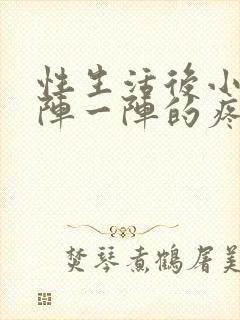 性生活後小
陣一陣的疼
焚琴煮鶴屠美